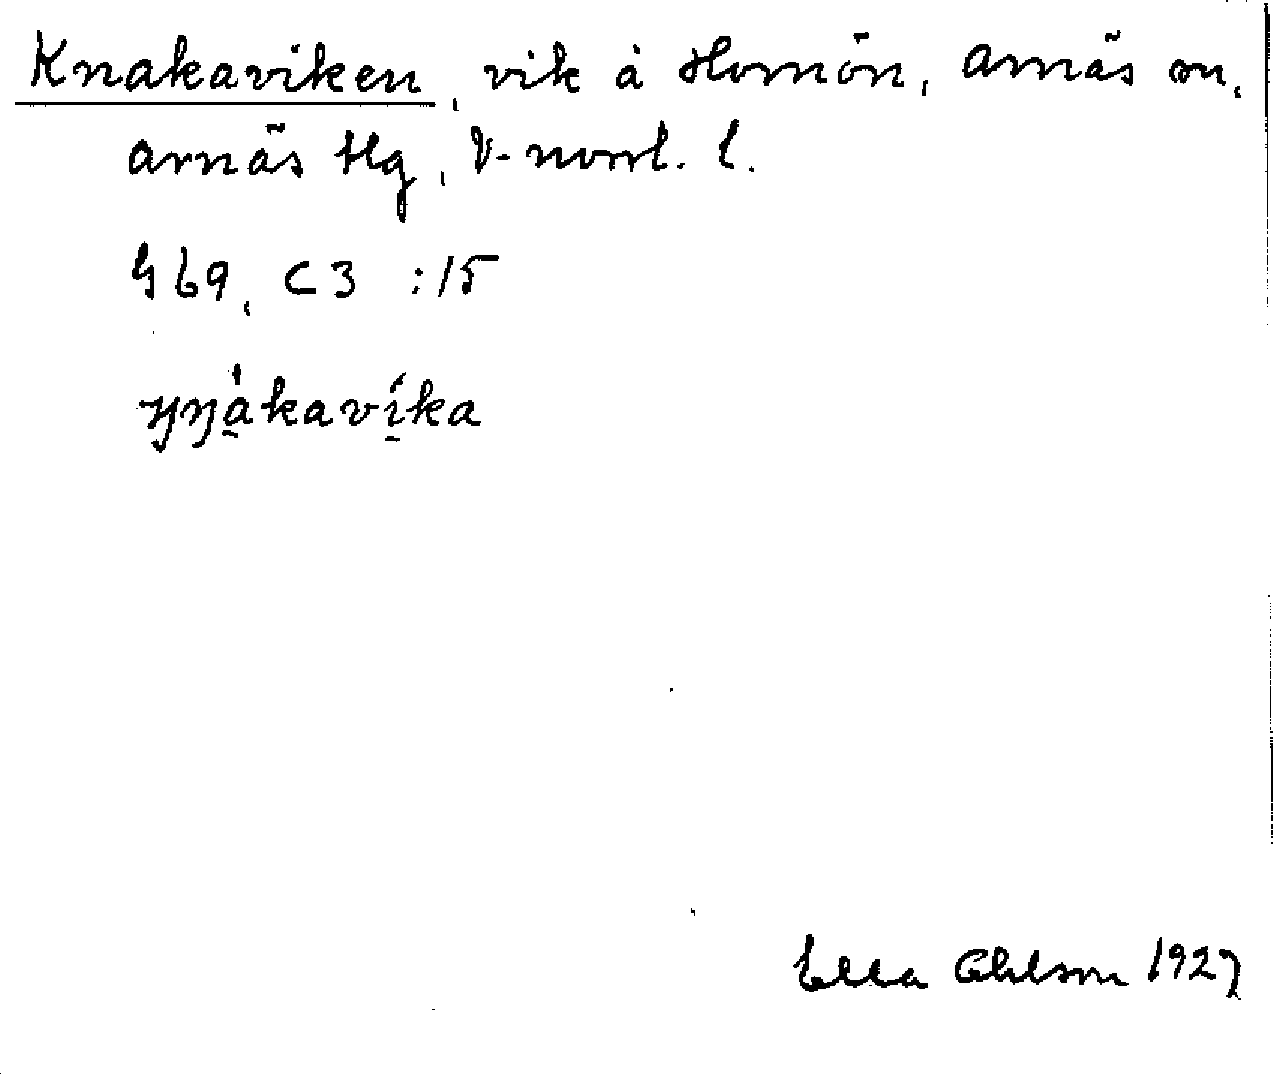 Knakaviken, vik å Hornön, Arnäs sn,
Arnäs tlg, V-norrl. l.
G 69, C3 :15
ŋŋàkavíka
Ella Ohlson 1927